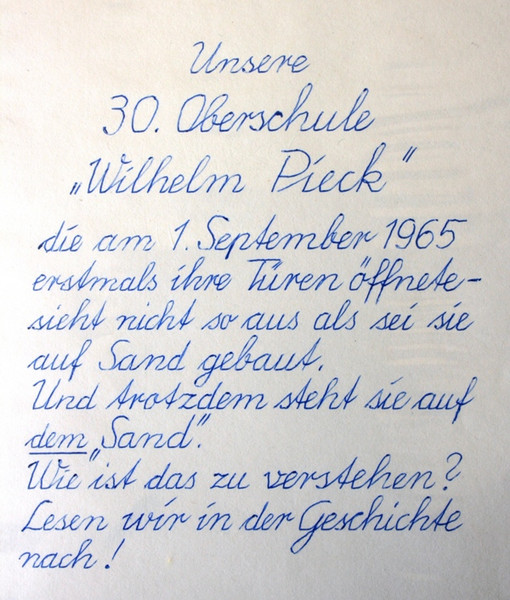 Unsere
30. Oberschule
„Wilhelm Pieck“
die am 1. September 1965
erstmals ihre Türen öffnete-
sieht nicht so aus als sei sie
auf Sand gebaut.
Und trotzdem steht sie auf
dem „Sand“.
Wie ist das zu verstehen?
Lesen wir in der Geschichte
nach!